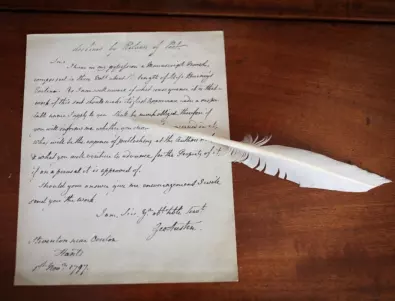 declined by Return of Post
Sirs
I have in my possession a Manuscript Novel,
comprised in three Vols. about the length of Miss Burney's
Evelina. As I am well aware of what consequence it is that
work of this sort should make its first appearance under a respec-
table name I apply to you. Shall be much obliged therefore if
you will inform me whether you chuse
what will be the expense of publishing at the Author's
& what you will venture to advance for the Property of it
if on a perusal it is approved of.
Should your answer give me encouragement I will
send you the Work
I am, Sirs Yr. obt. hble Servt
Geo Austen
Steventon near Overton
Hants
1st Novr. 1797.